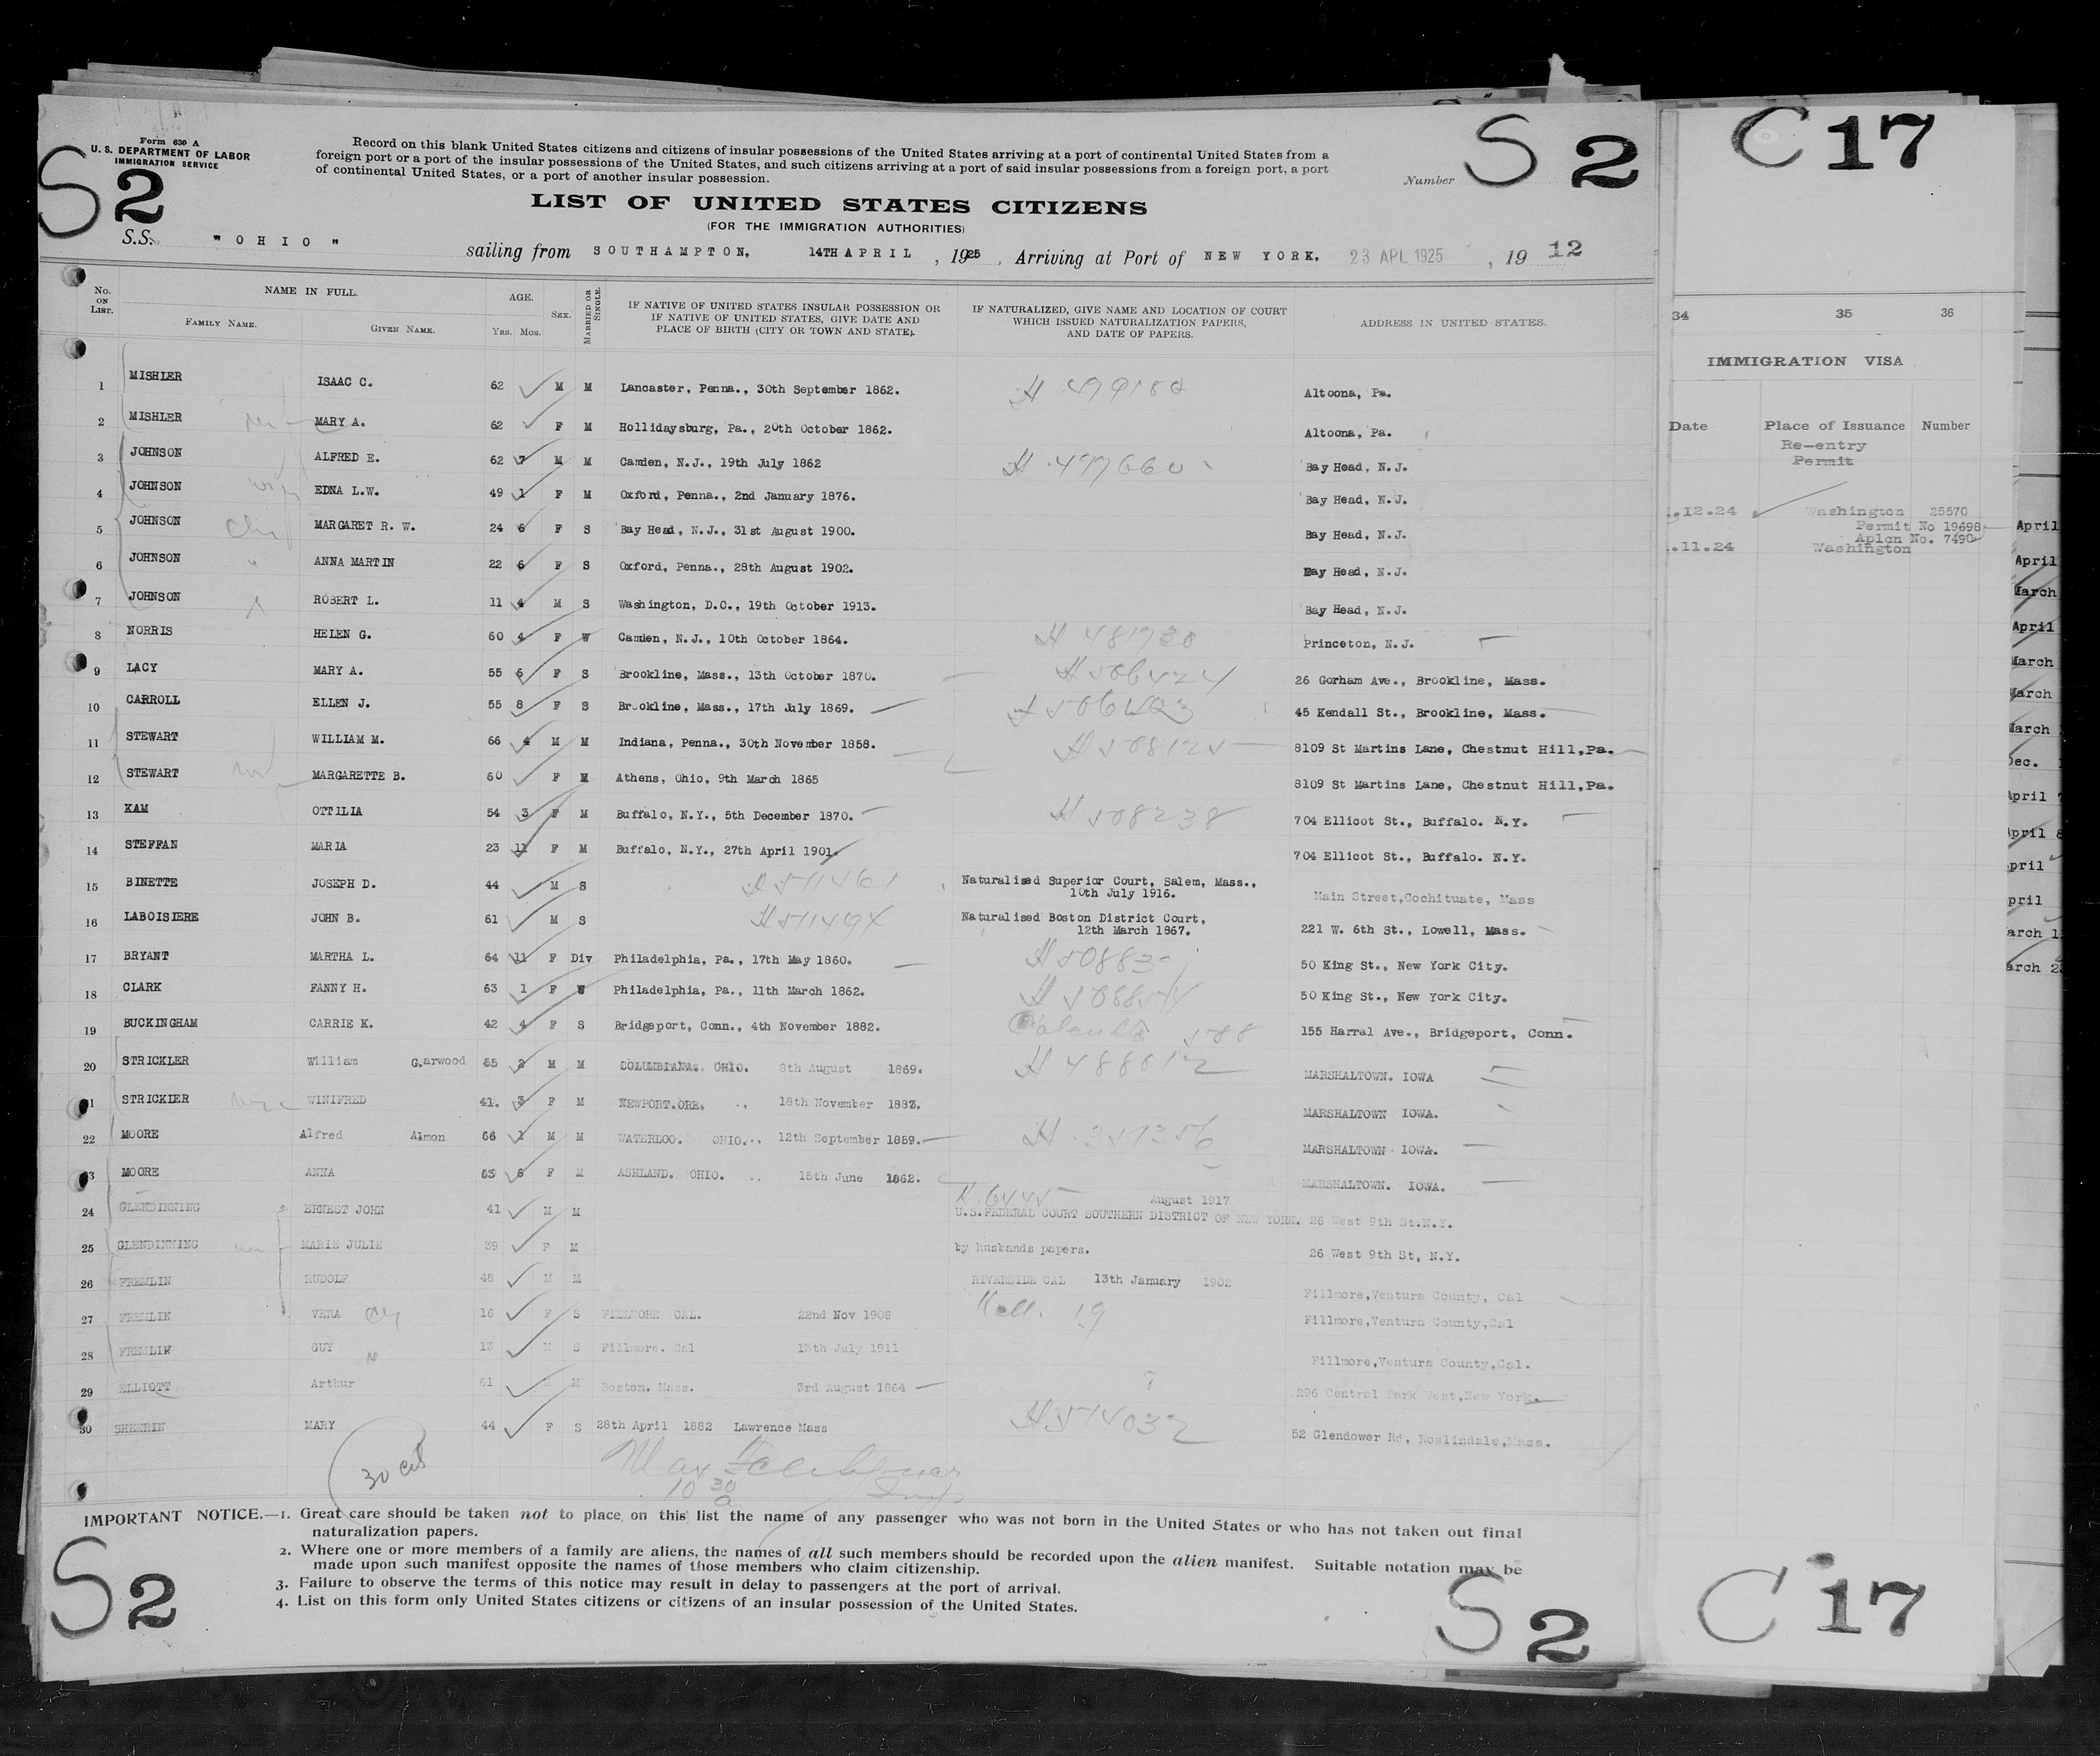 Form 630 A
U. S. DEPARTMENT OF LABOR
IMMIGRATION SERVICE
S 2
Record on this blank United States citizens and citizens of insular possessions of the United States arriving at a port of continental United States from a
foreign port or a port of the insular possessions of the United States, and such citizens arriving at a port of said insular possessions from a foreign port, a port
of continental United States, or a port of another insular possession.
Number S 2
LIST OF UNITED STATES CITIZENS
(FOR THE IMMIGRATION AUTHORITIES)
S.S. "OHIO" sailing from SOUTHAMPTON, 14TH APRIL, 1925, Arriving at Port of NEW YORK, 23 APL 1925, 19 12
No. ON LIST. NAME IN FULL. AGE. SEX. MARRIED OR SINGLE. IF NATIVE OF UNITED STATES INSULAR POSSESSION OR IF NATIVE OF UNITED STATES, GIVE DATE AND PLACE OF BIRTH (CITY OR TOWN AND STATE). IF NATURALIZED, GIVE NAME AND LOCATION OF COURT WHICH ISSUED NATURALIZATION PAPERS, AND DATE OF PAPERS. ADDRESS IN UNITED STATES.
FAMILY NAME. GIVEN NAME. Yrs. Mos.
1 MISHLER ISAAC C. 62 M M Lancaster, Penna., 30th September 1862. Altoona, Pa.
2 MISHLER MARY A. 62 F M Hollidaysburg, Pa., 20th October 1862. Altoona, Pa.
3 JOHNSON ALFRED E. 62 7 M M Camden, N.J., 19th July 1862 H 477660 Bay Head, N.J.
4 JOHNSON wife EDNA L.W. 49 1 F M Oxford, Penna., 2nd January 1876. Bay Head, N.J.
5 JOHNSON MARGARET R. W. 24 6 F S Bay Head, N.J., 31st August 1900. Bay Head, N.J.
6 JOHNSON " ANNA MARTIN 22 6 F S Oxford, Penna., 28th August 1902. Bay Head, N.J.
7 JOHNSON ROBERT L. 11 4 M S Washington, D.C., 19th October 1913. Bay Head, N.J.
8 NORRIS HELEN G. 60 4 F W Camden, N.J., 10th October 1864. H 481730 Princeton, N.J.
9 LACY MARY A. 55 6 F S Brookline, Mass., 13th October 1870. H 506424 26 Gorham Ave., Brookline, Mass.
10 CARROLL ELLEN J. 55 8 F S Brookline, Mass., 17th July 1869. 45 Kendall St., Brookline, Mass.
11 STEWART WILLIAM M. 66 4 M M Indiana, Penna., 30th November 1858. H 508125 8109 St Martins Lane, Chestnut Hill,Pa.
12 STEWART MARGARETTE B. 60 F M Athens, Ohio, 9th March 1865 8109 St Martins Lane, Chestnut Hill,Pa.
13 KAM OTTILIA 54 3 F M Buffalo, N.Y., 5th December 1870. H 508238 704 Ellicot St., Buffalo. N.Y.
14 STEFFAN MARIA 23 11 F M Buffalo, N.Y., 27th April 1901. 704 Ellicot St., Buffalo. N.Y.
15 BINETTE JOSEPH D. 44 M S H 511461 Naturalised Superior Court, Salem, Mass., 10th July 1916. Main Street,Cochituate, Mass
16 LABOISIERE JOHN B. 61 M S Naturalised Boston District Court, 12th March 1867. 221 W. 6th St., Lowell, Mass.
17 BRYANT MARTHA L. 64 11 F Div Philadelphia, Pa., 17th May 1860. 50 King St., New York City.
18 CLARK FANNY H. 63 1 F W Philadelphia, Pa., 11th March 1862. 50 King St., New York City.
19 BUCKINGHAM CARRIE K. 42 4 F S Bridgeport, Conn., 4th November 1882. 155 Harral Ave., Bridgeport, Conn.
20 STRICKLER William G.arwood 55 8 M M COLUMBIANA. OHIO. 8th August 1869. H 488612 MARSHALTOWN. IOWA
21 STRICKLER WINIFRED 41. 3 F M NEWPORT.ORE. 18th November 1883. MARSHALTOWN IOWA.
22 MOORE Alfred Almon 66 1 M M WATERLOO. OHIO. 12th September 1859. H 351356 MARSHALTOWN IOWA.
23 MOORE ANNA 63 6 F M ASHLAND. OHIO. 15th June 1862. MARSHALTOWN. IOWA.
24 GLENDINNING ERNEST JOHN 41 M M August 1917 U.S.FEDERAL COURT SOUTHERN DISTRICT OF NEW YORK. 26 West 9th St.N.Y.
25 GLENDINNING MARIE JULIE 39 F M by husbands papers. 26 West 9th St, N.Y.
26 FREMLIN RUDOLF 48 M M RIVERSIDE CAL 13th January 1902 Fillmore,Ventura County, Cal
27 FREMLIN VERA 16 F S FILLMORE CAL. 22nd Nov 1908 Fillmore,Ventura County,Cal
28 FREMLIN GUY 13 M S Fillmore. Cal 13th July 1911 Fillmore,Ventura County,Cal.
29 ELLIOTT Arthur 61 M M Boston. Mass. 3rd August 1864 ? 296 Central Park West,New York.
30 SHEERIN MARY 44 F S 28th April 1882 Lawrence Mass H 514032 52 Glendower Rd, Roslindale,Mass.
30 cit
10 30 a
IMPORTANT NOTICE.—1. Great care should be taken not to place on this list the name of any passenger who was not born in the United States or who has not taken out final
naturalization papers.
2. Where one or more members of a family are aliens, the names of all such members should be recorded upon the alien manifest. Suitable notation may be
made upon such manifest opposite the names of those members who claim citizenship.
3. Failure to observe the terms of this notice may result in delay to passengers at the port of arrival.
4. List on this form only United States citizens or citizens of an insular possession of the United States.
S 2
S 2
C 17
34 35 36
IMMIGRATION VISA
Date Place of Issuance Number
Re-entry
Permit
.12.24 Washington 25570
Permit No 19698
Aplcn No. 7490
.11.24 Washington
C 17
April
April
March
April
March
March
March
Dec.
April 7
April 8
pril
pril
arch 1
arch 2